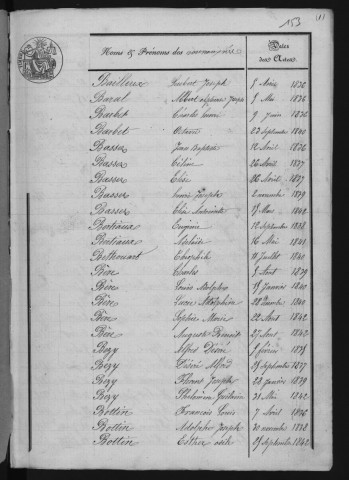 153
Noms & Prénoms des
Dates
des Actes
Bailleux Joseph 1836
Baral Albert Joseph Mai 1836
Barbet Charles Louis 9 Juin 1836
Barbet Octavie 23 Septembre 1840
Basses Jean Baptiste 12 Avril 1836
Basses Céline 26 Avril 1837
Basses Elise 26 Avril 1837
Basses Louis Joseph 2 novembre 1839
Basses Elise Antoinette Mars 1842
Bertiaux Eugénie 12 Septembre 1838
Bertiaux Adélaïde 16 Mai 1841
Bethencourt Théophile 11 Juillet 1840
Bère Charles 5 Avril 1839
Bère Louis Adolphe 15 Janvier 1840
Bère Lucie Adolphine 28 1840
Bère Sophie Marie 22 Avril 1842
Bère Auguste Benoit 27 1842
Bezy Alfred Désiré 9 février 1835
Bezy Désiré Alfred 25 Septembre 1837
Bezy Florent Joseph 22 janvier 1839
Bezy Philomène Ghislaine 31 Mai 1842
Bottin François Louis 7 Avril 1836
Bottin Adolphe Joseph 30 novembre 1838
Bottin Esther 25 Septembre 1842